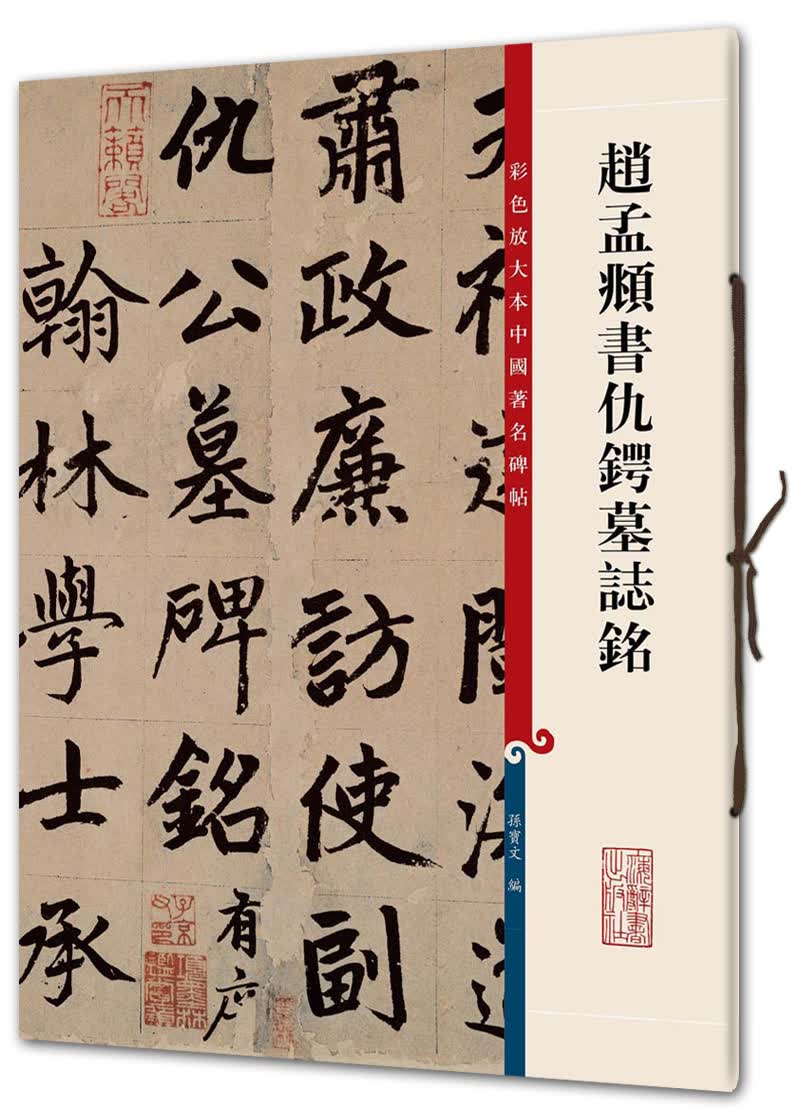 趙孟頫書仇鍔墓誌銘
彩色放大本中國著名碑帖
孫寶文 編
肅政廉訪使副
仇公墓碑銘 有序
翰林學士承
天籟閣